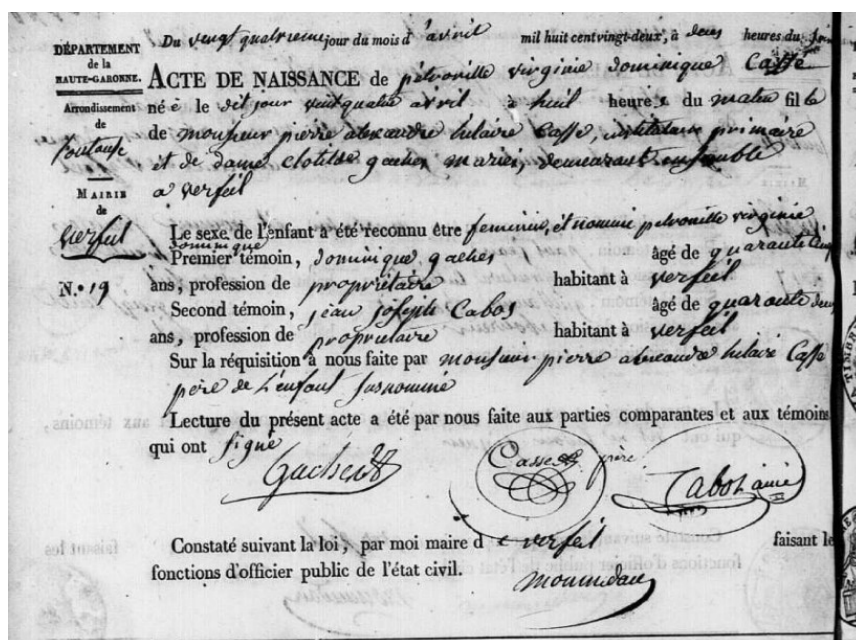 DÉPARTEMENT
de la
HAUTE-GARONNE.
Arrondissement
de
Toulouse
MAIRIE
de
Verfeil
N.º 19
Du vingt quatrieme jour du mois d'avril mil huit cent vingt-deux, à deux heures du
ACTE DE NAISSANCE de petronille virginie dominique Casse
né e le dit jour vint quatre avril à huit heures du matin fil le
de monsieur pierre alexandre hilaire Casse, instituteur primaire
et de dame clotilde gaches mariés, demeurant ensemble
a verfeil
Le sexe de l'enfant a été reconnu être feminin, et nommé petronille virginie
dominique
Premier témoin, dominique gaches âgé de quarante cinq
ans, profession de propriétaire habitant à verfeil
Second témoin, jean joseph Cabos âgé de quarante deux
ans, profession de propriétaire habitant à verfeil
Sur la réquisition à nous faite par monsieur pierre alexandre hilaire Casse
père de l'enfant susnommé
Lecture du présent acte a été par nous faite aux parties comparantes et aux témoins
qui ont signé
Gaches Casse père Cabos ainé
Constaté suivant la loi, par moi maire d e verfeil faisant le
fonctions d'officier public de l'état civil.